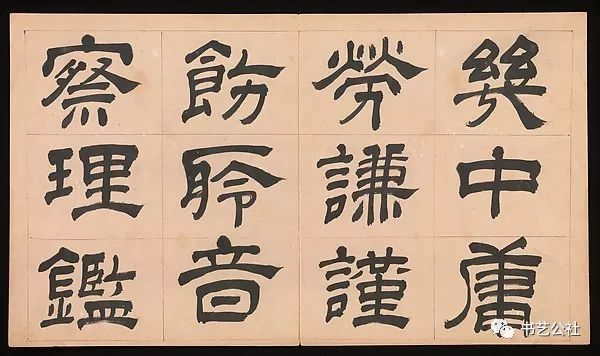 幾中庸
勞謙謹
飭聆音
察理鑑
书艺公社